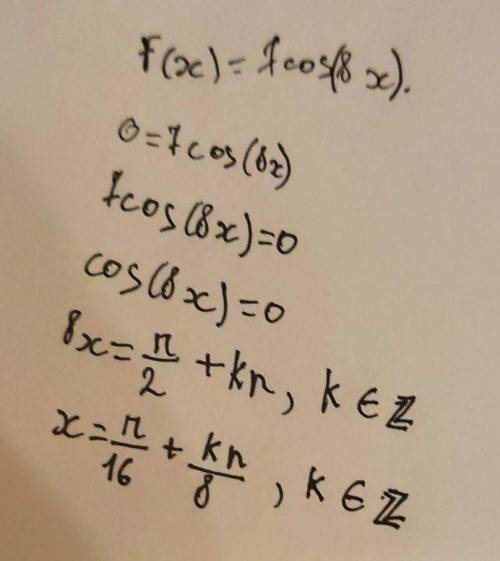 F(x) = 7cos(8x).
0 = 7cos(8x)
7cos(8x) = 0
cos(8x) = 0
8x = π/2 + kπ, k ∈ ℤ
x = π/16 + kπ/8, k ∈ ℤ